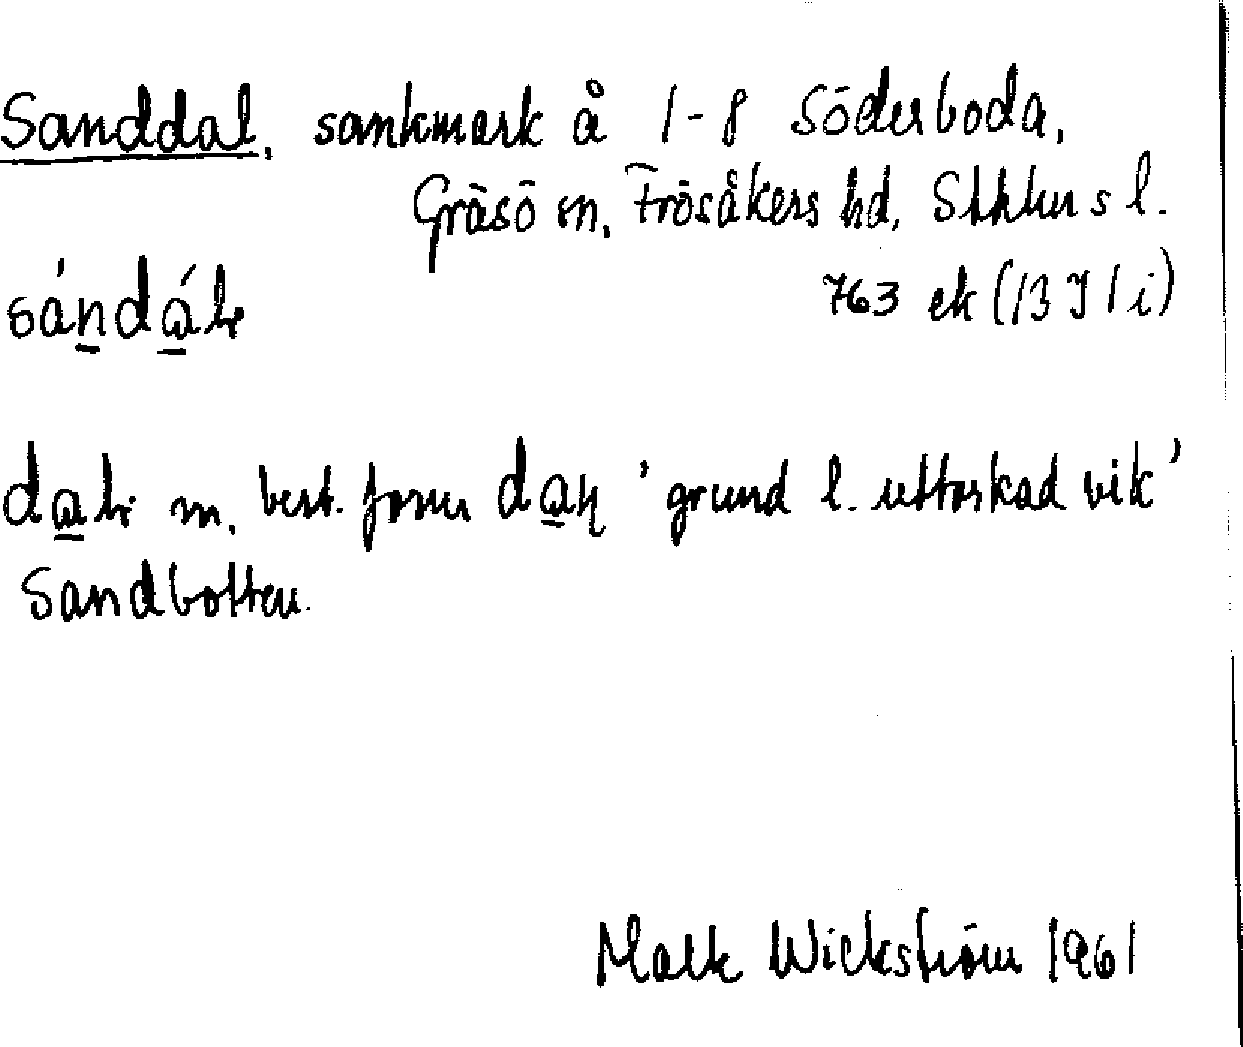 Sanddal, sankmark å 1-8 Söderboda,
Gräsö sn, Frösåkers hd, Sthlms l.
763 ek (13 I 1 i)
m. best. form 'grund l. uttorkad vik'
Sandbotten.
Wickström 1961